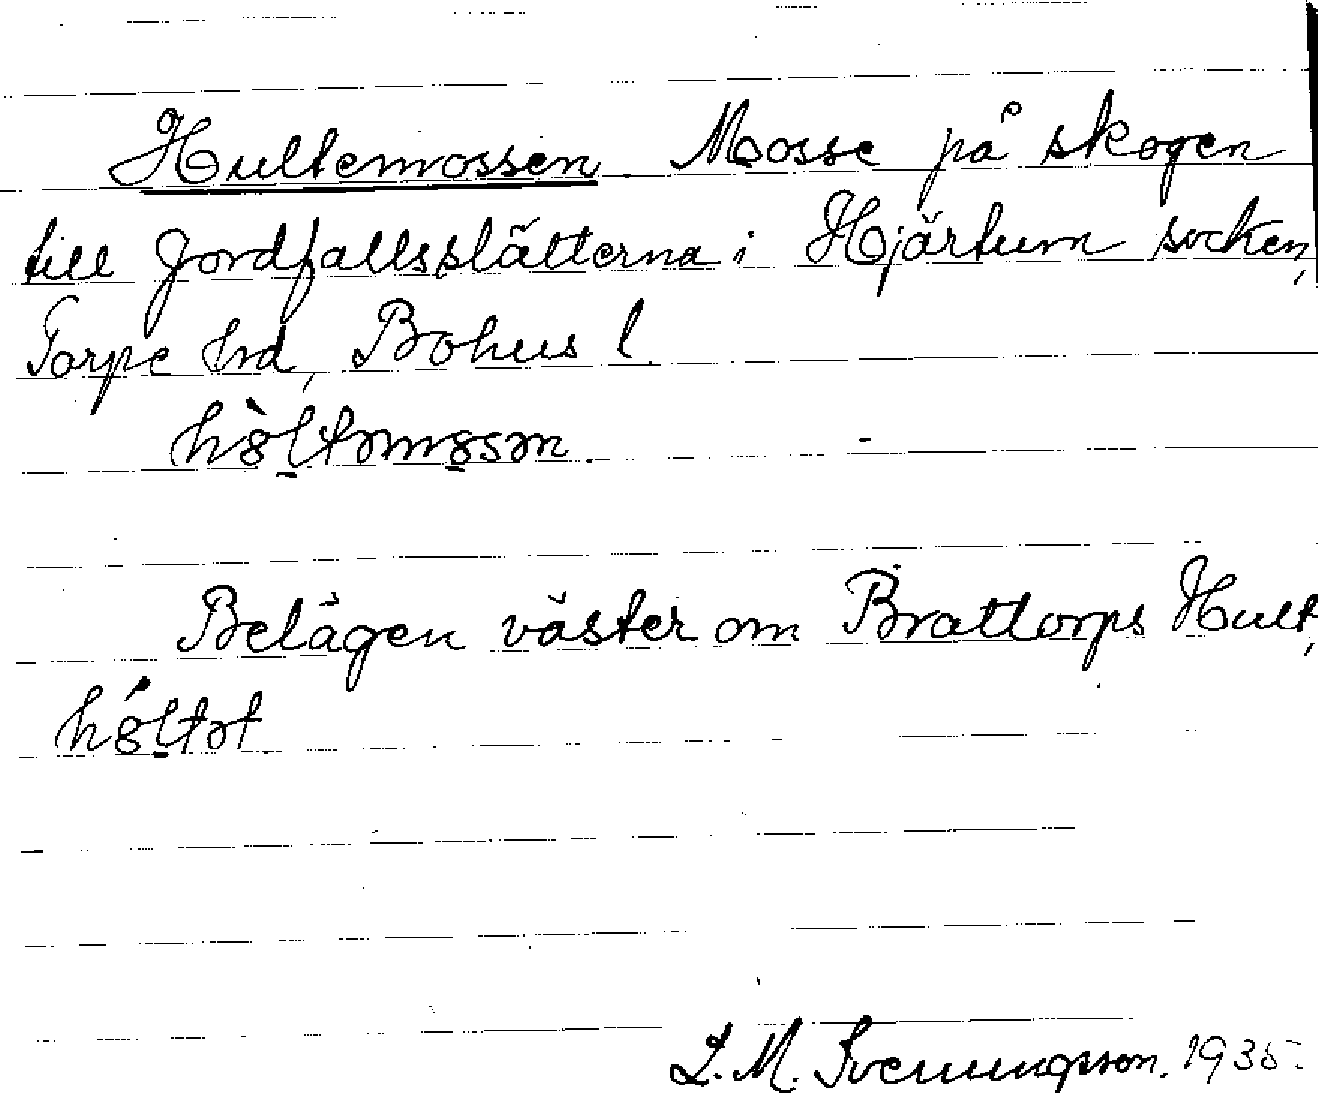 Hultemossen Mosse på skogen
till Jordfallsslätterna i Hjärtum socken,
Torpe hrd, Bohus l.
hò̱ltəmo̱sən.
Belägen väster om Brattorps Hult,
hó̱ltət.
L. M. Svenungsson. 1935.